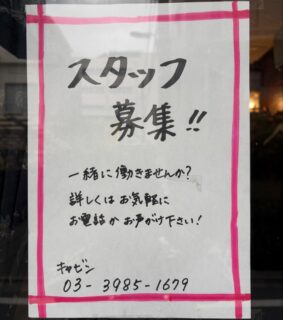 スタッフ
募集!!
一緒に働きませんか?
詳しくは お気軽に
お電話か お声がけ下さい!
キッゼン
03-3985-1679